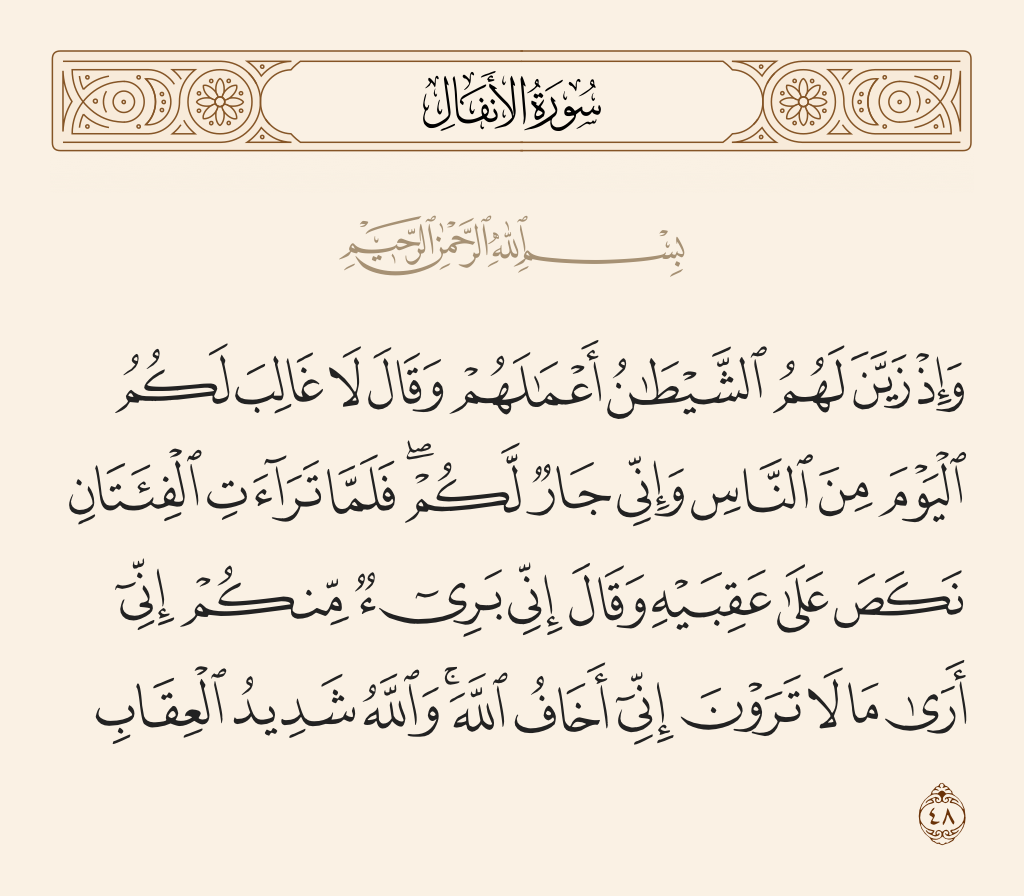 سُورَةُ الأَنفَالِ
بِسْمِ ٱللَّهِ ٱلرَّحْمَٰنِ ٱلرَّحِيمِ
وَإِذْ زَيَّنَ لَهُمُ ٱلشَّيْطَٰنُ أَعْمَٰلَهُمْ وَقَالَ لَا غَالِبَ لَكُمُ
ٱلْيَوْمَ مِنَ ٱلنَّاسِ وَإِنِّى جَارٌ لَّكُمْ ۖ فَلَمَّا تَرَآءَتِ ٱلْفِئَتَانِ
نَكَصَ عَلَىٰ عَقِبَيْهِ وَقَالَ إِنِّى بَرِىٓءٌ مِّنكُمْ إِنِّىٓ
أَرَىٰ مَا لَا تَرَوْنَ إِنِّىٓ أَخَافُ ٱللَّهَ ۚ وَٱللَّهُ شَدِيدُ ٱلْعِقَابِ
٤٨